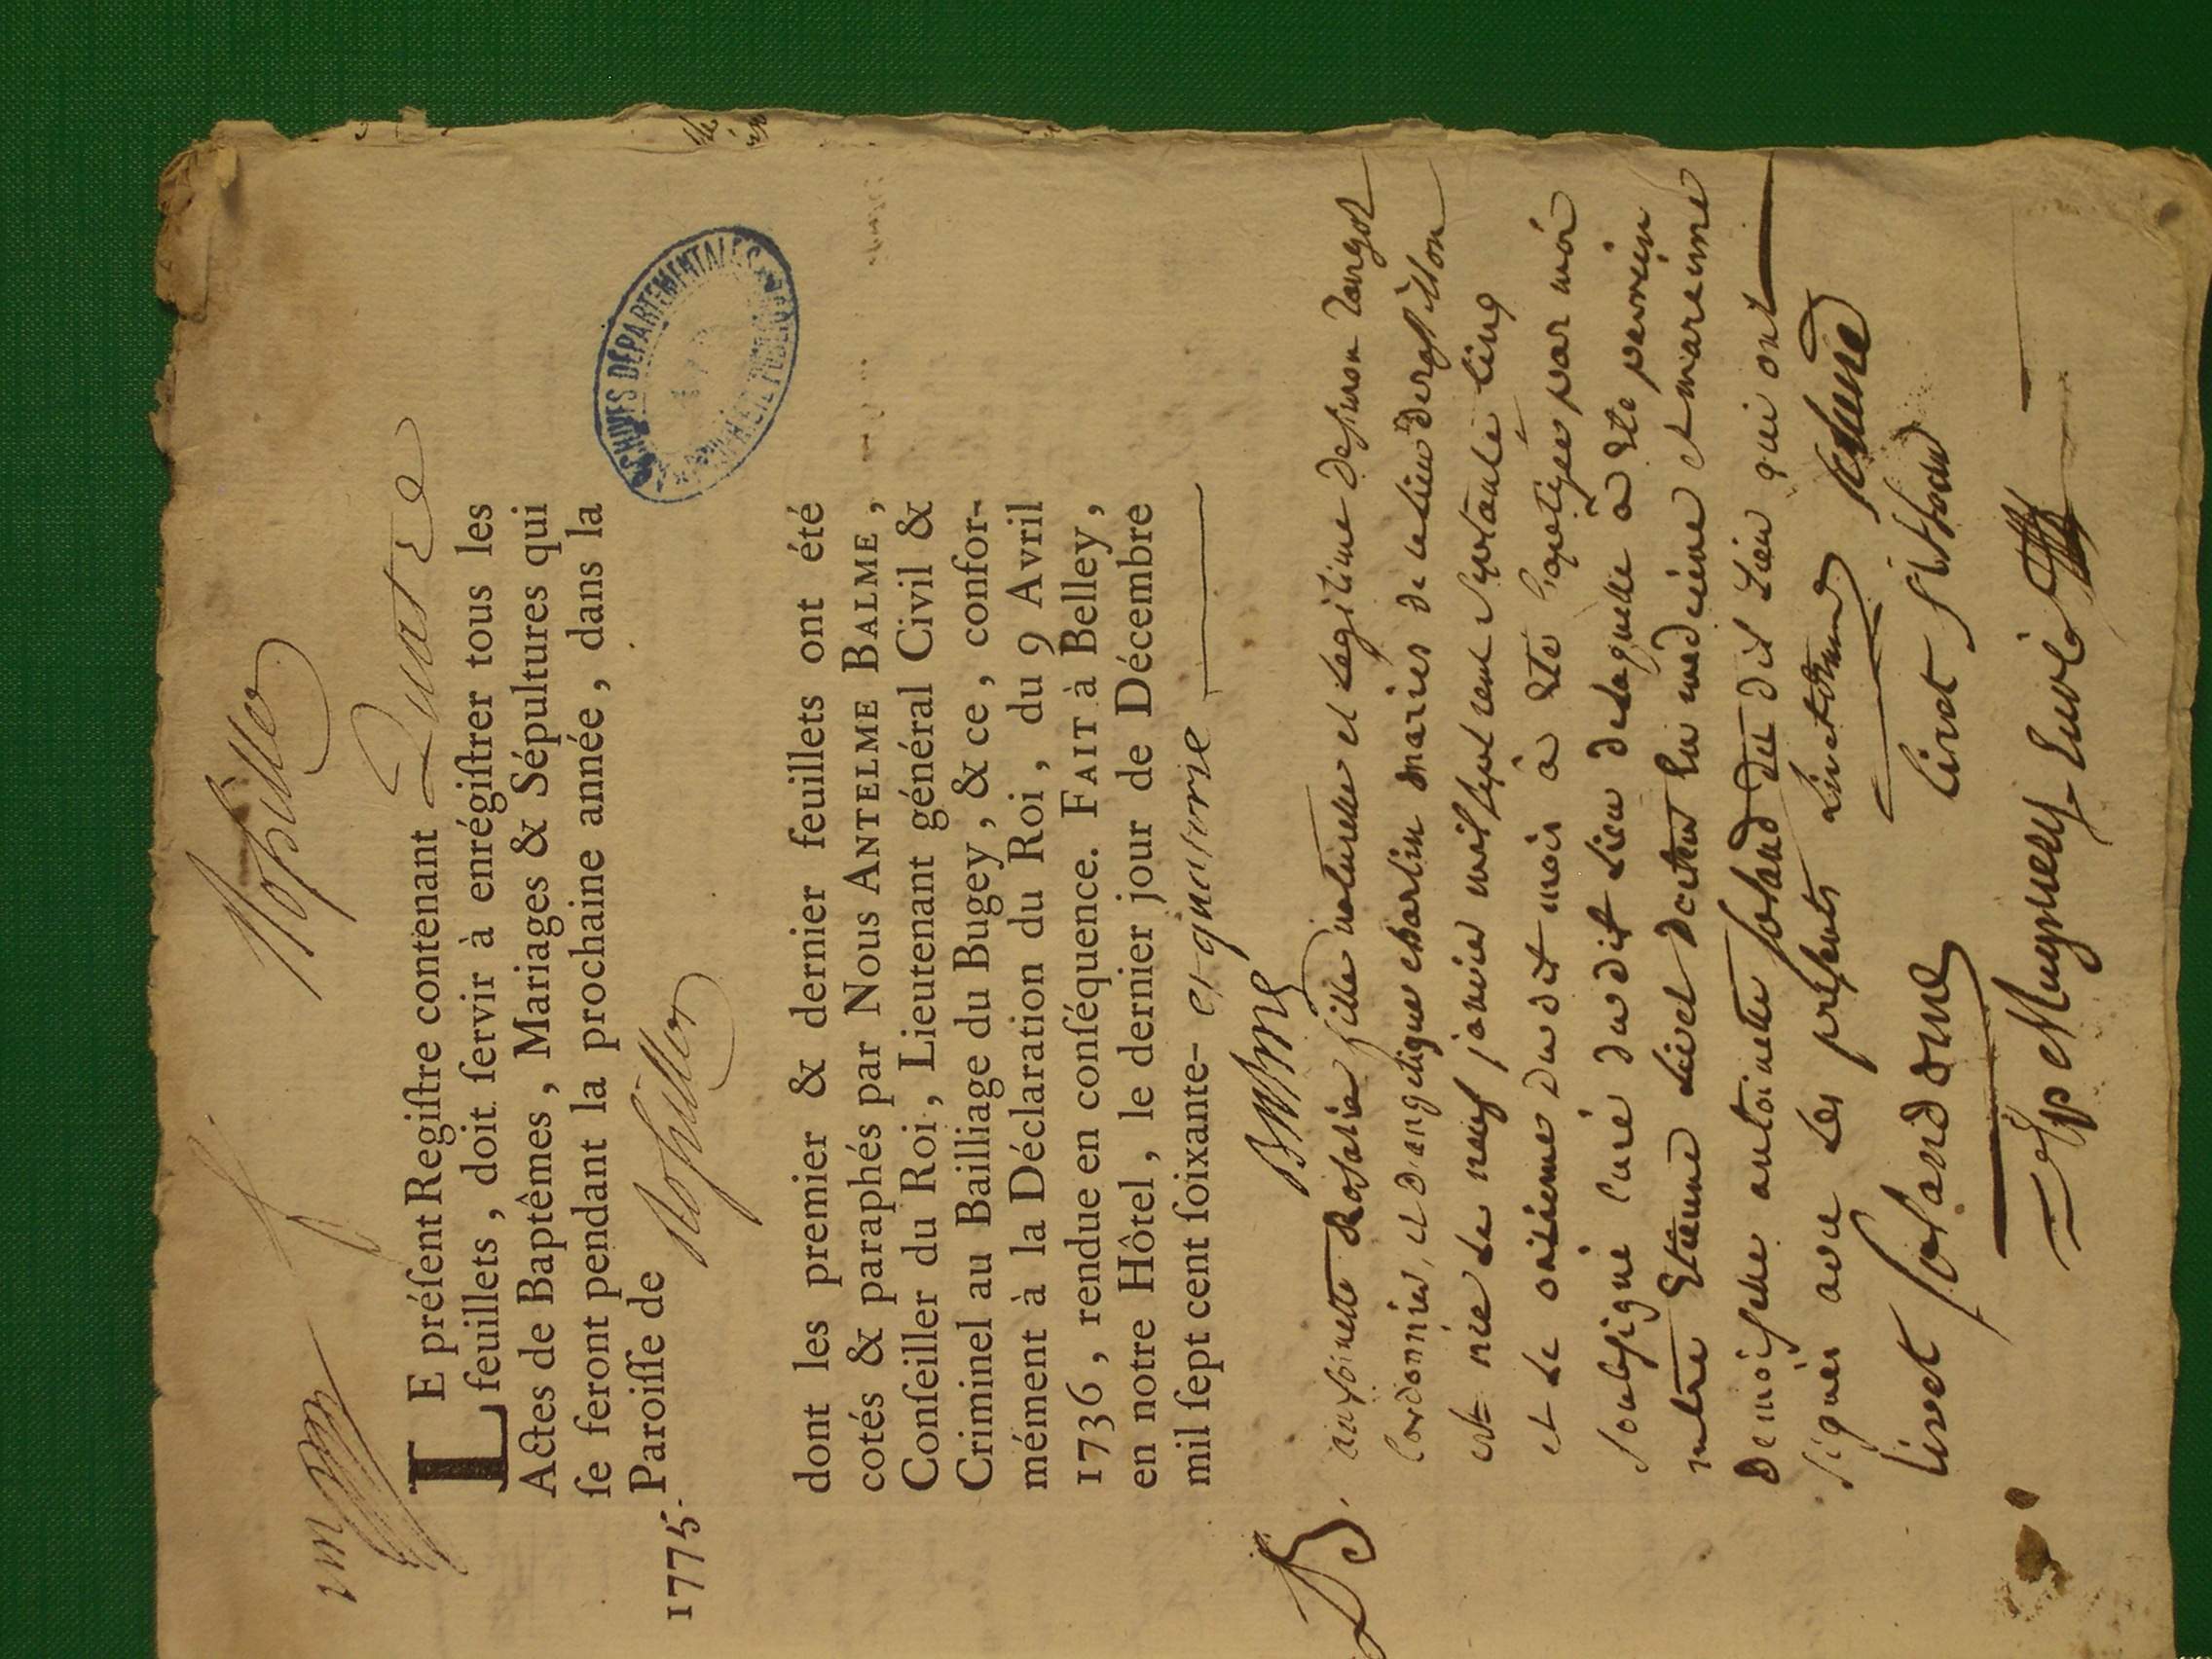 Rossillon
LE préſent Regiſtre contenant Quatre
feuillets, doit ſervir à enrégiſtrer tous les
Actes de Baptêmes, Mariages & Sépultures qui
ſe feront pendant la prochaine année, dans la
1775. Paroiſſe de Rossillon
ARCHIVES DEPARTEMENTALES
dont les premier & dernier feuillets ont été
cotés & paraphés par Nous ANTELME BALME,
Conſeiller du Roi, Lieutenant général Civil &
Criminel au Bailliage du Bugey, & ce, confor-
mément à la Déclaration du Roi, du 9 Avril
1736, rendue en conſéquence. FAIT à Belley,
en notre Hôtel, le dernier jour de Décembre
mil ſept cent ſoixante- et quatorze
Balme
B. anthoinette Rosalie fille naturelle et legitime de simon
Cordonnier, et d'angelique charlin mariés de ce lieu de rossillon
est née le neuf janvier mil sept cent septante cinq
et le onzieme du dit mois a été baptisée par moi
soussigné curé du dit lieu de laquelle a été parrein
Etienne Livet docteur en medecine et mareinne
Demoiselle antoinette du dit Lieu qui ont
signés avec les présents
Livet
Livet
Mugnery curé